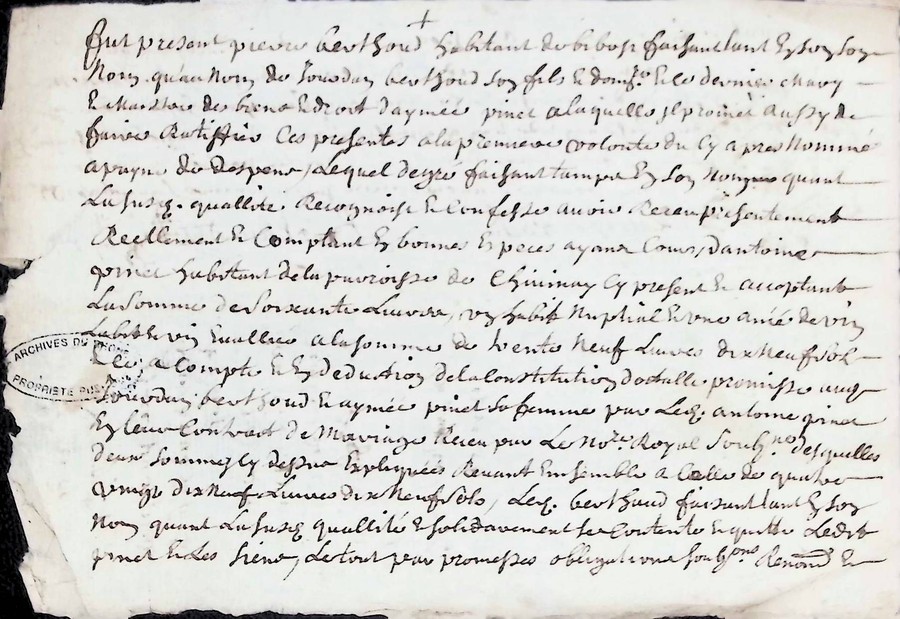 +
fut present pierre berthoud habitant de bibost faisant tant en son
nom qu'au nom de Jourdan berthoud son fils Et de le dernier mary
Et Maistre des biens Et droit d'aymée pinet a laquelle Il promet aussy de
faire Rattiffier Ces presentes a la premiere volonte du Cy apres Nommé
a payne de despens, Lequel degre faisant tant En son Nom que quant
La susd. quallite Recognoist Et Confesse avoir Receu presentement
Reellement Et Comptant En bonnes Especes ayant Cours, d'antoine
pinet habitant de la parroisse de Chivinay Cy present Et acceptant
La somme de soixante Livres, un habit Nuptial Et une anée de vin
Labit Et vin Evallués a la somme de trente Neuf Livres dix Neuf sols
ARCHIVES DU RHONE
PROPRIETE PUBLIQUE
Et Ce a Compte Et En deduction de la Constitution dotalle promisse aux
Jourdan berthoud Et aymée pinet sa femme par Led. antoine pinet
En leur Contract de Mariage Receu par Le No.re Royal soubz.né desquelles
deux sommes Cy dessus Expliquées Revenant Ensemble a Celle de quatre
vingt dix Neuf Livres dix Neuf sols, Led. berthoud faisant tant En son
Nom quant La susd. quallité Et solidairement se Contente Et quitte Ledit
pinet Et Les siens, Le tout par promesses obligations soubz.ons Renon.ons Et